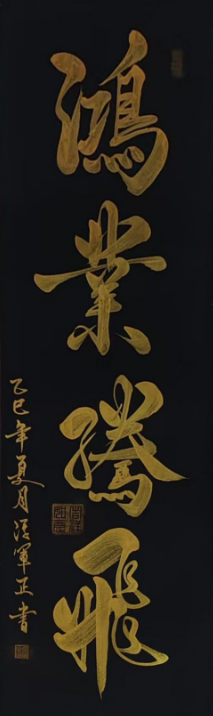 鴻業騰飛
乙巳年夏月軍正書